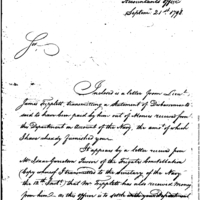 Accountants Office
Septem 21st 1798
Sir
Inclosed is a letter from Lieut
James Triplett transmitting a Statement of Disbursements
and to have been paid by him out of Monies received from
the Department on Account of the Navy, the amt of which
I have already furnished you.
It appears by a letter received from
Mr Isaac Garretson Purser of the Frigate Constellation
(copy whereof I transmitted to the Secretary of the Navy
the 18th Inst) that Mr Triplett has also received Money
from him